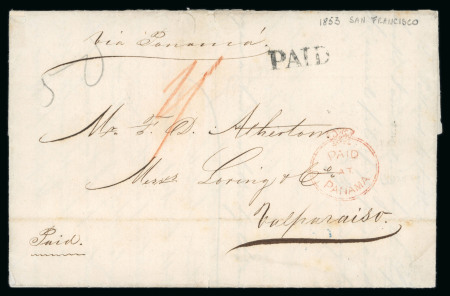 1853 SAN FRANCISCO
via Panamá.
PAID
50
Mr. F. D. Atherton
Messrs Loring & Co
PAID
AT
PANAMA
Valparaiso.
Paid.